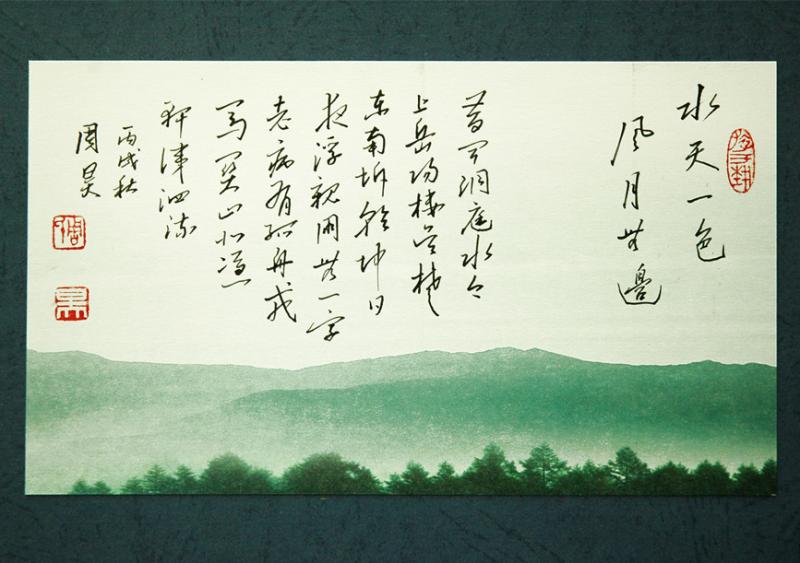 水天一色
风月無邊
昔闻洞庭水今
上岳阳楼吴楚
东南坼乾坤日
夜浮親朋無一字
老病有孤舟戎
马关山北凭
轩涕泗流
丙戌秋
周昊